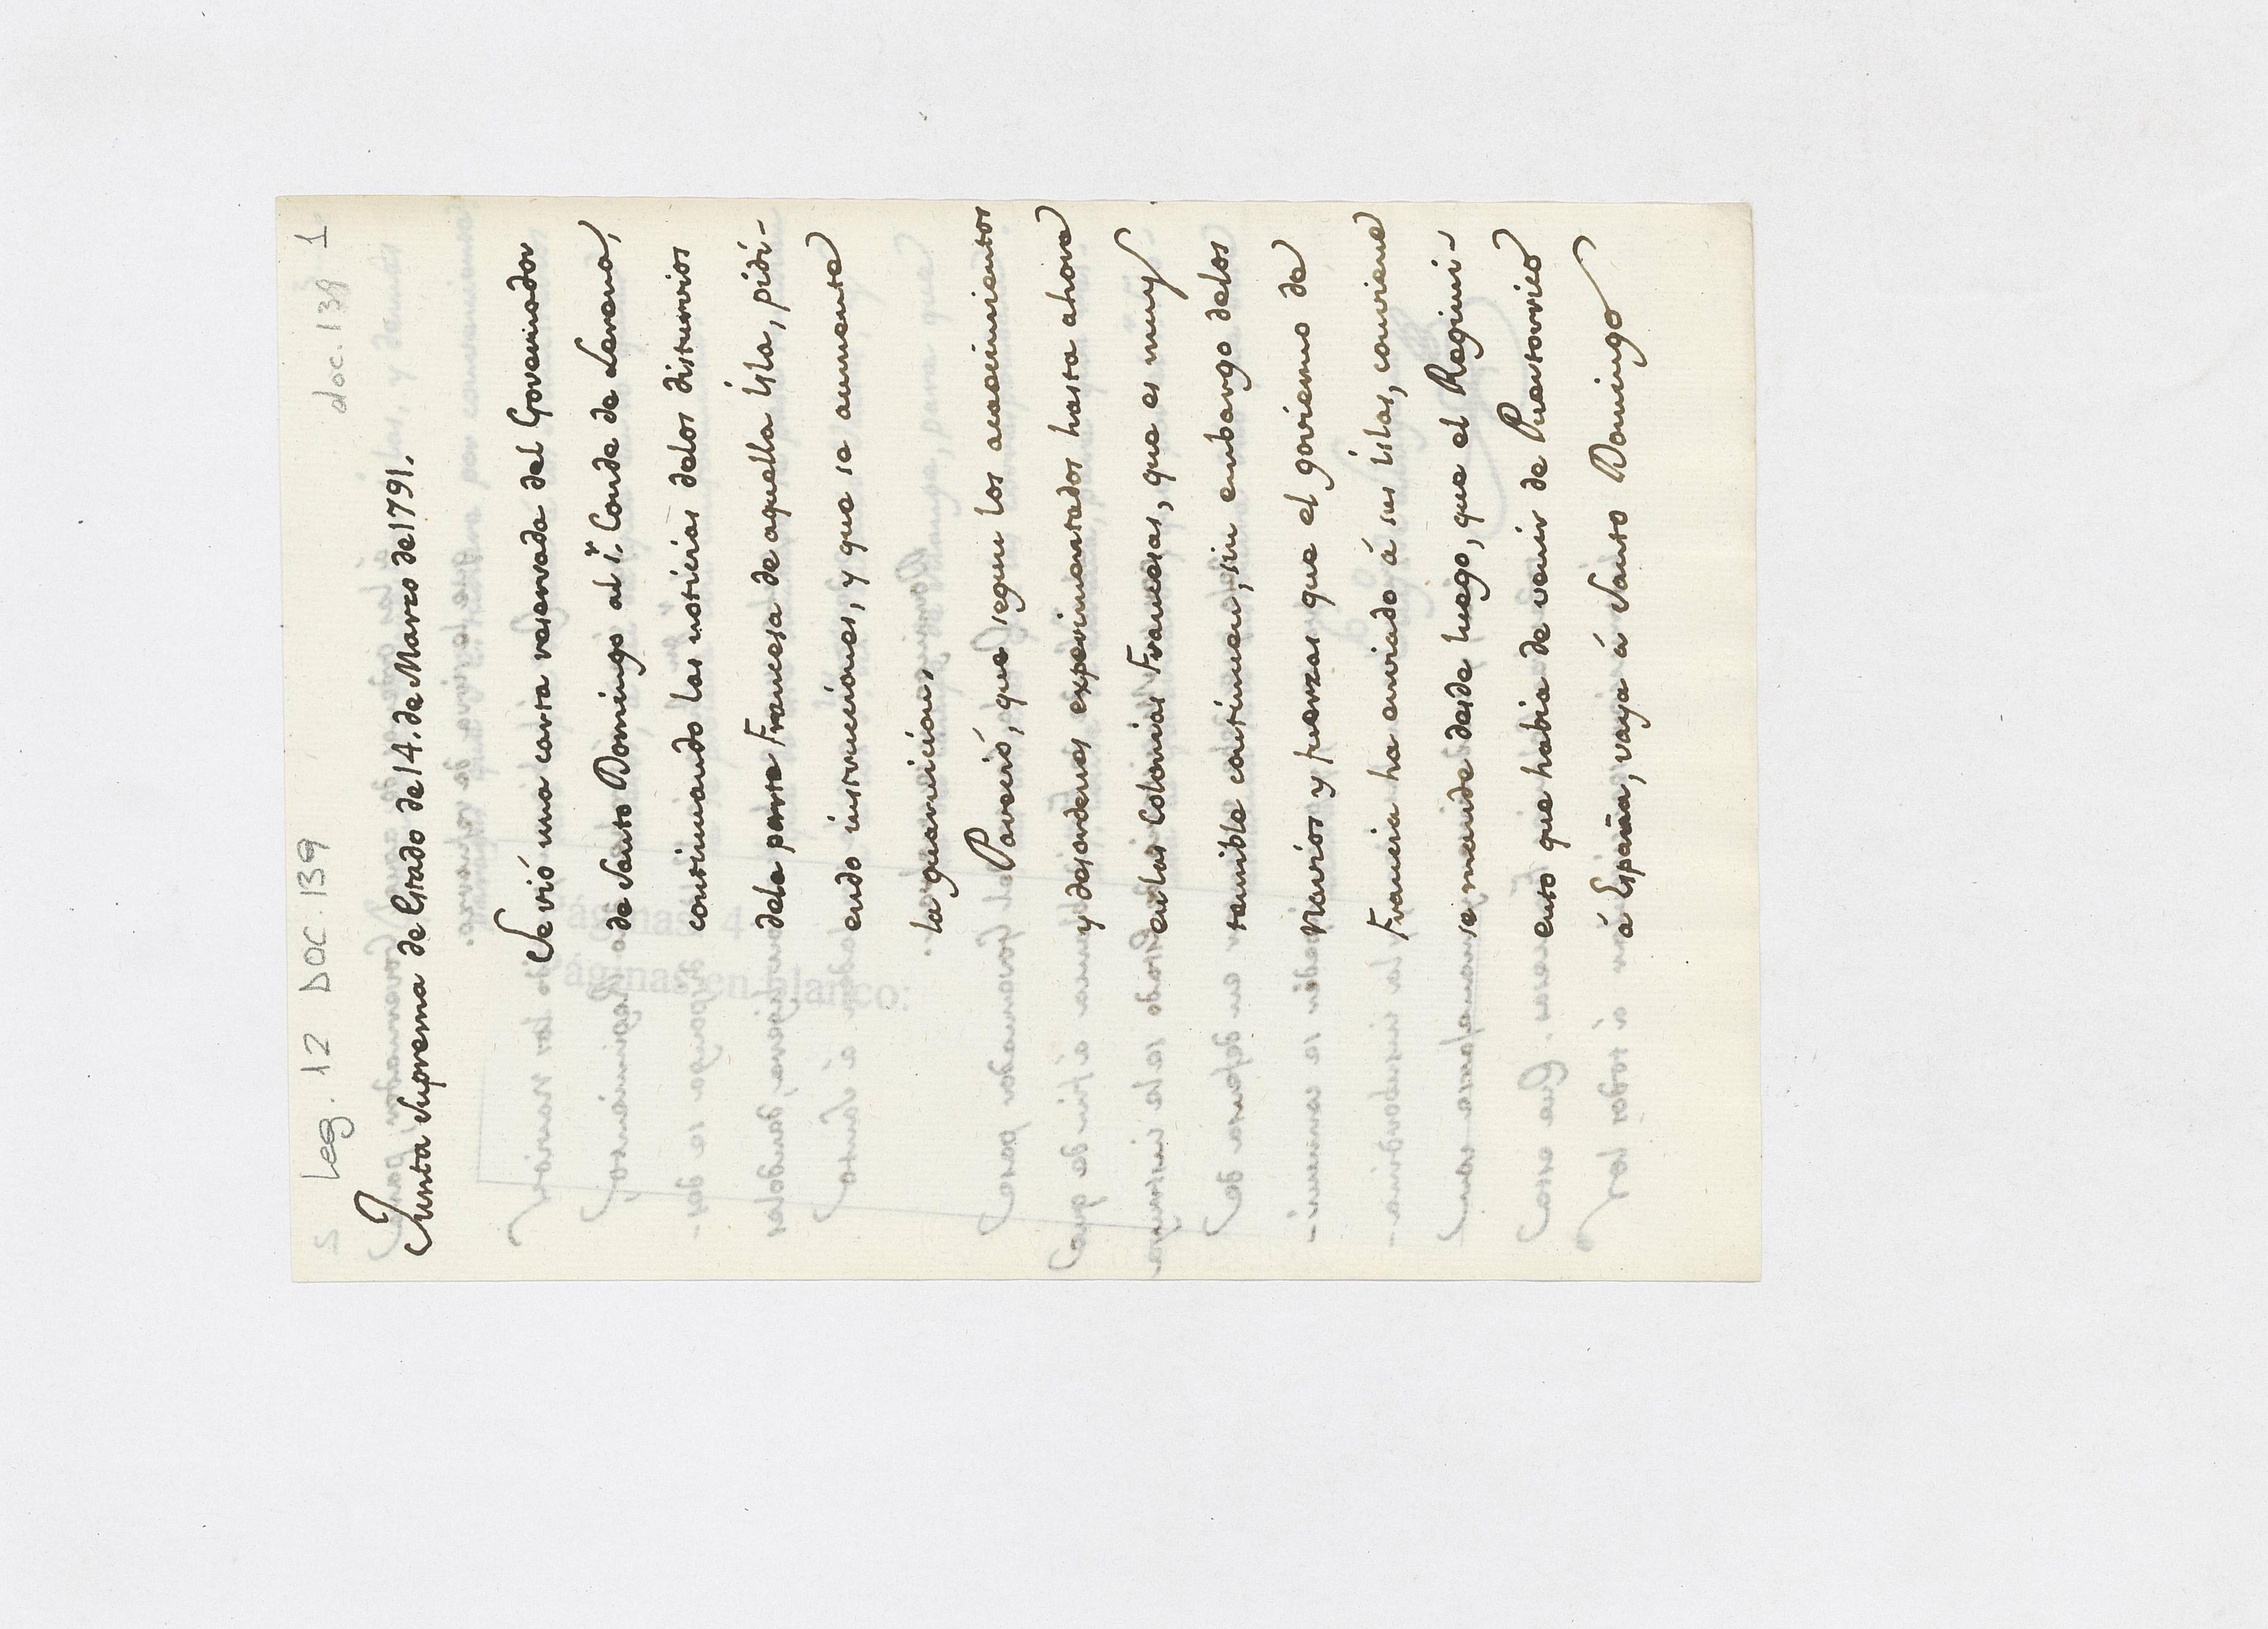 Leg. 12 DOC. 139
doc. 139 1
Junta Suprema de Estado de 14. de Marzo de 1791.
Se vió una carta reservada del Governador
de Santo Domingo al S.r Conde de Lerena,
continuando las noticias delos disturvios
dela parte Francesa de aquella Ysla, pidi-
endo instrucciones, y que se aumente
la guarnicion.
Pareció, que segun los acaecimientos
y desordenes experimentados hasta ahora
en las Colonias Francesas, que es muy
temible continuen, sin embargo delos
Navios y fuerzas que el govierno de
Francia ha enviado á sus Yslas, conviene
se mande desde luego, que el Regimi-
ento que habia de venir de Puertorrico
á España, vaya á Santo Domingo